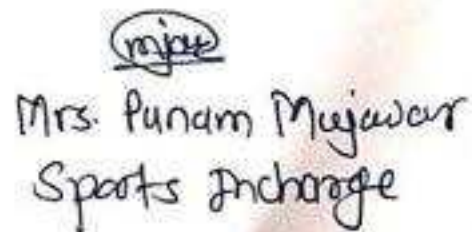 Mrs. Punam Mujawar
Sports Incharge